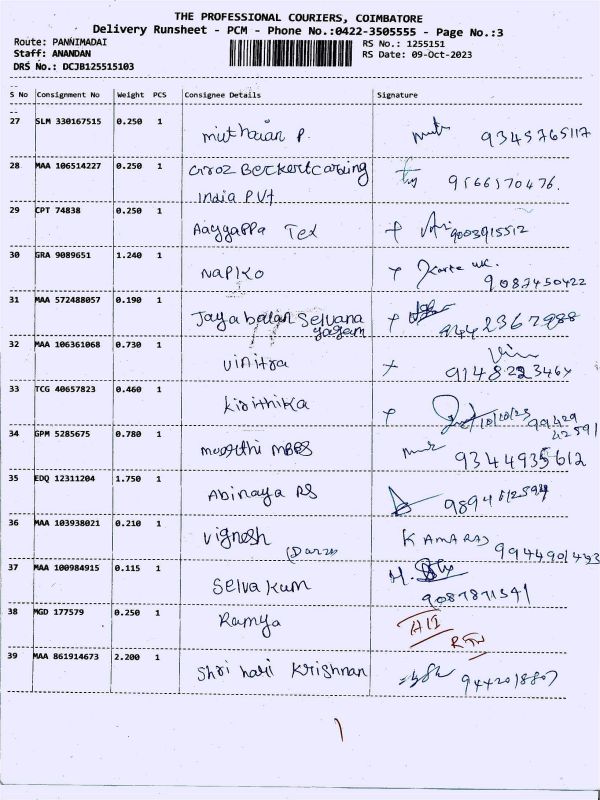 THE PROFESSIONAL COURIERS, COIMBATORE
Delivery Runsheet - PCM - Phone No.:0422-3505555 - Page No.:3
Route: PANNIMADAI
RS No.: 1255151
Staff: ANANDAN
RS Date: 09-Oct-2023
DRS No.: DCJB125515103
S No Consignment No Weight PCS Consignee Details Signature
27 SLM 330167515 0.250 1 muthaian P. 9345765117
28 MAA 106514227 0.250 1
India Pvt 9566170476.
29 CPT 74838 0.250 1 Aayyappa Tex 9003915512
30 GRA 9089651 1.240 1 Napiko 9087450422
31 MAA 572488057 0.190 1 Jayabalan Selvana
yagam 9442367988
32 MAA 106361068 0.730 1 Vinitra
33 TCG 40657823 0.460 1 Kirithika 10/10/23 99429
42591
34 GPM 5285675 0.780 1 moorthi MBBS 9344935612
35 EDQ 12311204 1.750 1 Abinaya RS
36 MAA 103938021 0.210 1 Vignesh KAMARAJ
9944901443
37 MAA 100984915 0.115 1 Selvakum 9087871541
38 MGD 177579 0.250 1 Ramya
RTN
39 MAA 861914673 2.200 1 Shri hari Krishnan 9442018807